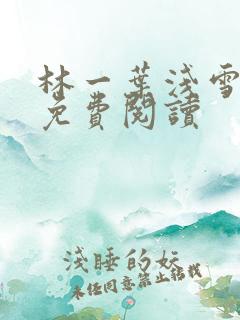 林一葉淺雪
免費閱讀
淺睡的妖
未經同意禁止轉載